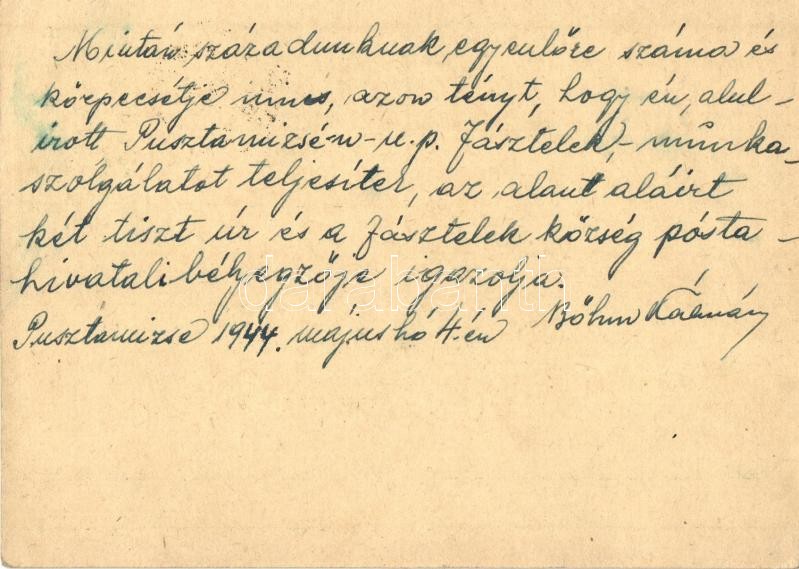 Miután századunknak egyenlőre száma és
körpecsétje nincs, azon tényt, hogy én, alul-
írott Pusztamizsé-n-u.p. Jásztelek,-munka-
szolgálatot teljesítek, az alant aláirt
két tiszt úr és a Jásztelek község pósta-
hivatali bélyegzője igazolja.
Pusztamizse 1944. május hó 4.-én Böhm Kálmán
darabanth